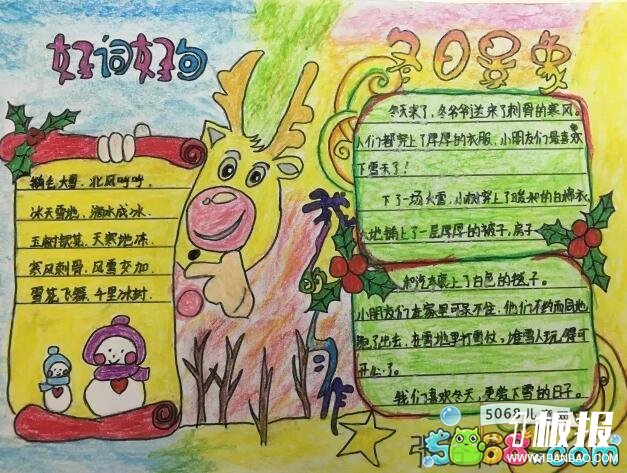 好词好句
鹅毛大雪，北风呼呼，
冰天雪地，滴水成冰，
玉树银花，天寒地冻，
寒风刺骨，风雪交加，
雪花飞舞，千里冰封。
冬日景象
冬天来了，冬爷爷送来了刺骨的寒风。
人们都穿上了厚厚的衣服，小朋友们最喜欢
下雪天了！
下了一场大雪，小树穿上了暖和的白棉衣，
大地铺上了一层厚厚的被子，房子
和汽车裹上了白色的毯子。
小朋友们在家里可呆不住，他们不约而同地
跑了出去，在雪地里打雪仗，堆雪人玩得可
开心了。
我们喜欢冬天，更爱下雪的日子。
5068儿
板报
WWW.1BANBAO.COM